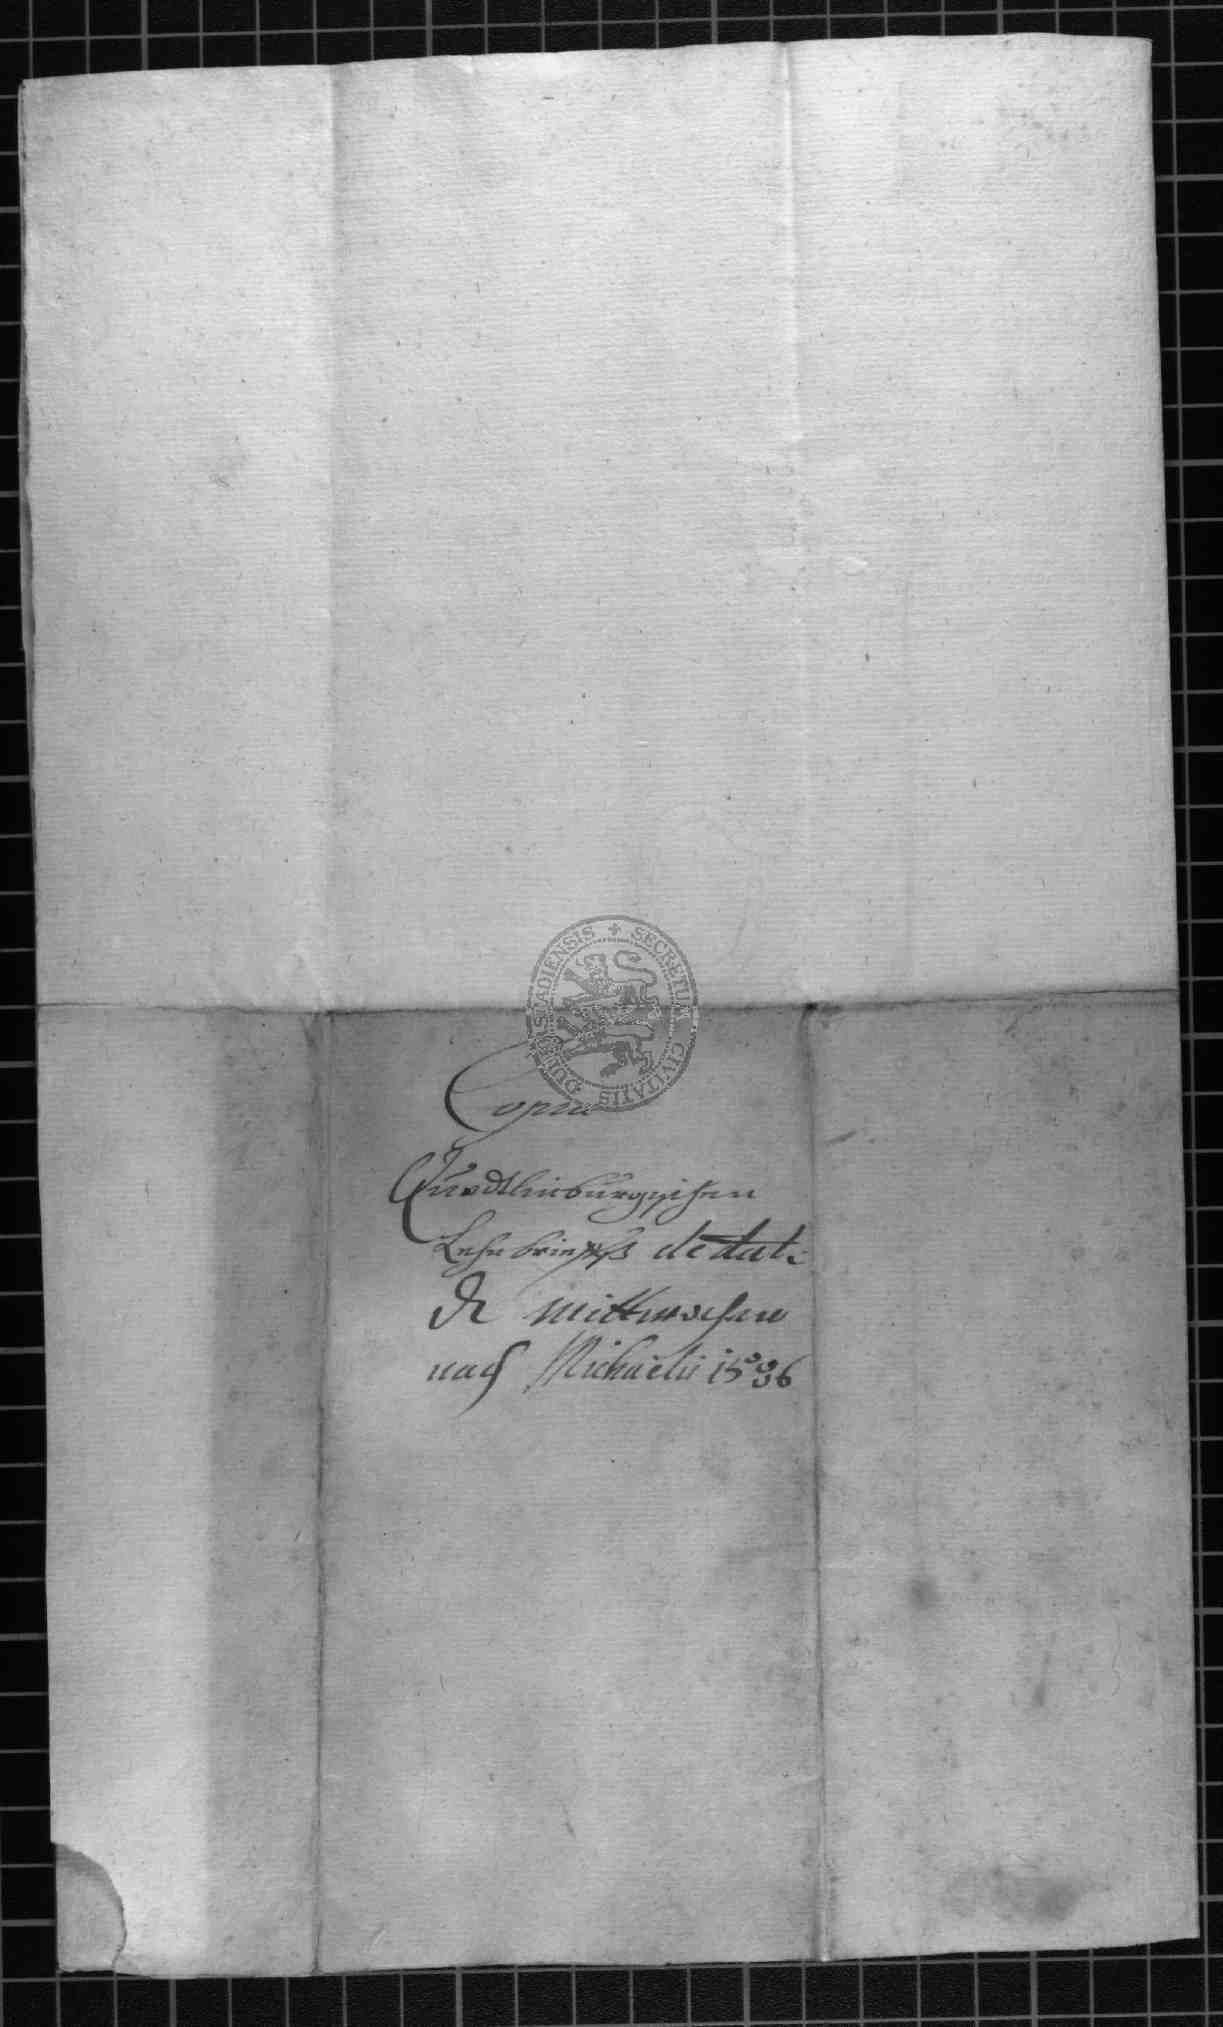 SECRETUM CIVITATIS DUDERSTADIENSIS
Copia
Quedtlinburgischen
Lehnbrieffß de dat:
De mittwochen
nach Michaelis 1536